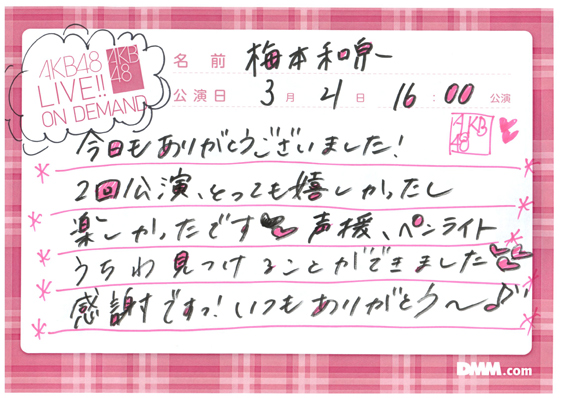 AKB48
LIVE!!
ON DEMAND
AKB
48
名前 梅本和泉
公演日 3月 4日 16:00 公演
AKB
48
今日もありがとうございました！
2回公演、とっても嬉しかったし
楽しかったです 声援、ペンライト
うちわ見つけることができました
感謝ですっ！いつもありがとう〜♪
DMM.com